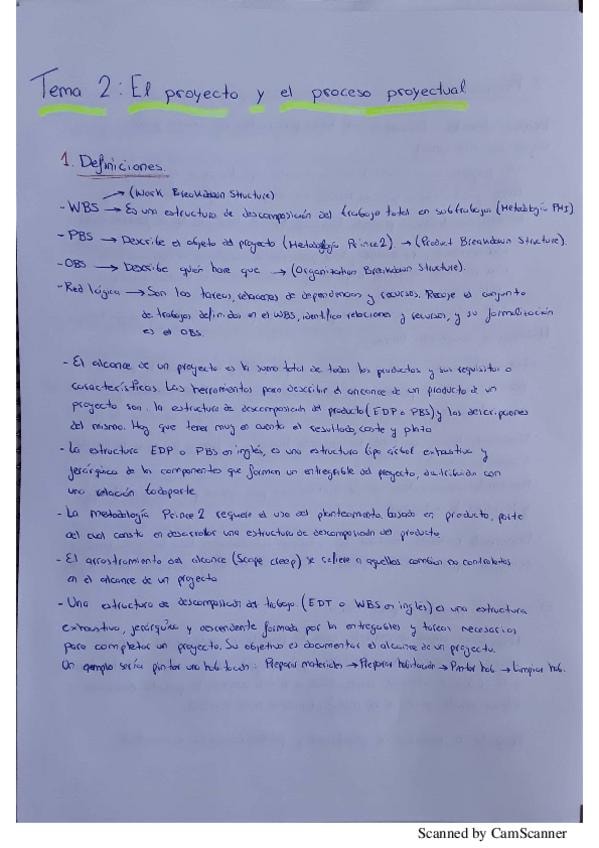 Tema 2: El proyecto y el proceso proyectual
1. Definiciones.
(Work Breakdown Structure)
- WBS → Es una estructura de descomposición del trabajo total en subtrabajos (Metodología PMI)
- PBS → Describe el objeto del proyecto (Metodología Prince 2). → (Product Breakdown Structure).
- OBS → Describe quién hace que → (Organization Breakdown Structure).
- Red lógica → Son las tareas, relaciones de dependencias y recursos. Recoge el conjunto
de trabajos definidos en el WBS, identifica relaciones y recursos, y su formalización
es el OBS.
- El alcance de un proyecto es la suma total de todos los productos y sus requisitos o
características. Las herramientas para describir el alcance de un producto de un
proyecto son: la estructura de descomposición del producto (EDP o PBS) y las descripciones
del mismo. Hay que tener muy en cuenta el resultado, coste y plazo
- La estructura EDP o PBS en inglés, es una estructura tipo árbol exhaustiva y
jerárquica de los componentes que forman un entregable del proyecto, distribuida con
una relación todoparte.
- La metodología Prince 2 requiere el uso del planteamiento basado en producto, parte
del cual consta en desarrollar una estructura de descomposición del producto
- El arrastramiento del alcance (Scope creep) se refiere a aquellos cambios no controlados
en el alcance de un proyecto
- Una estructura de descomposición del trabajo (EDT o WBS en inglés) es una estructura
exhaustiva, jerárquica y descendente formada por los entregables y tareas necesarias
para completar un proyecto. Su objetivo es documentar el alcance de un proyecto.
Un ejemplo sería pintar una habitación: Preparar materiales → Preparar habitación → Pintar hab → Limpiar hab.
Scanned by CamScanner